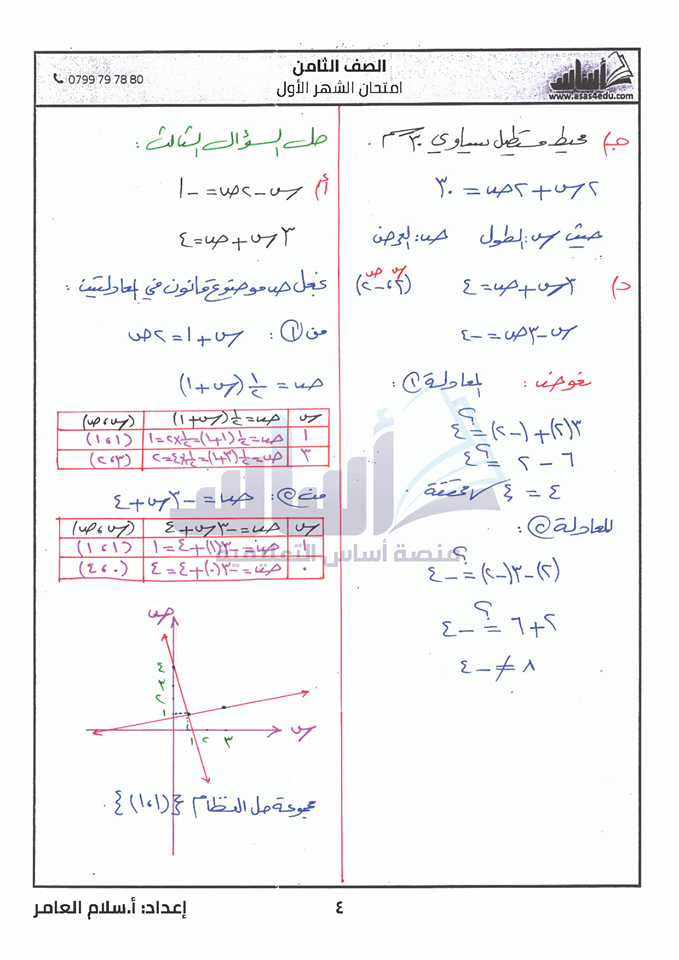 الصف الثامن
امتحان الشهر الأول
0799 79 78 80
أساس
www.asas4edu.com
جـ) محيط مستطيل يساوي ٣٠ سم .
٢س + ٢ص = ٣٠
حيث س: الطول ص: العرض
د) ٣س + ص = ٤ (٢، -٢)
س ص
س - ٣ص = -٤
نعوض : المعادلة ①:
٣(٢) + (-٢) ≟ ٤
٦ - ٢ ≟ ٤
٤ = ٤ محققة ✓
المعادلة ②:
(٢) - ٣(-٢) ≟ -٤
٢ + ٦ ≟ -٤
٨ ≠ -٤
حل السؤال الثالث :
أ) س - ٢ص = -١
٣س + ص = ٤
نجعل ص موضوع قانون في المعادلتين :
من ① : س + ١ = ٢ص
ص = ١/٢ (س + ١)
س | ص = ١/٢ (س + ١) | (س، ص)
١ | ص = ١/٢ (١ + ١) = ١/٢ × ٢ = ١ | (١، ١)
٣ | ص = ١/٢ (٣ + ١) = ١/٢ × ٤ = ٢ | (٣، ٢)
من ②: ص = -٣س + ٤
س | ص = -٣س + ٤ | (س، ص)
١ | ص = -٣(١) + ٤ = ١ | (١، ١)
٠ | ص = -٣(٠) + ٤ = ٤ | (٠، ٤)
أساس
منصة أساس التعليمية
ص
٤
٣
٢
١
١ ٢ ٣
س
مجموعة حل النظام {(١، ١)}
إعداد: أ.سلام العامر
٤